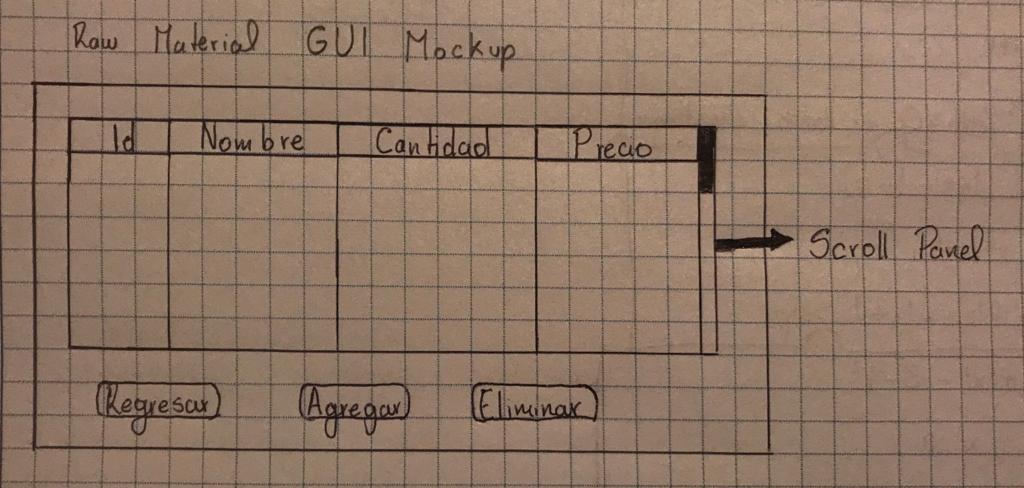 Raw Material GUI Mockup
Id Nombre Cantidad Precio
Scroll Panel
Regresar Agregar Eliminar